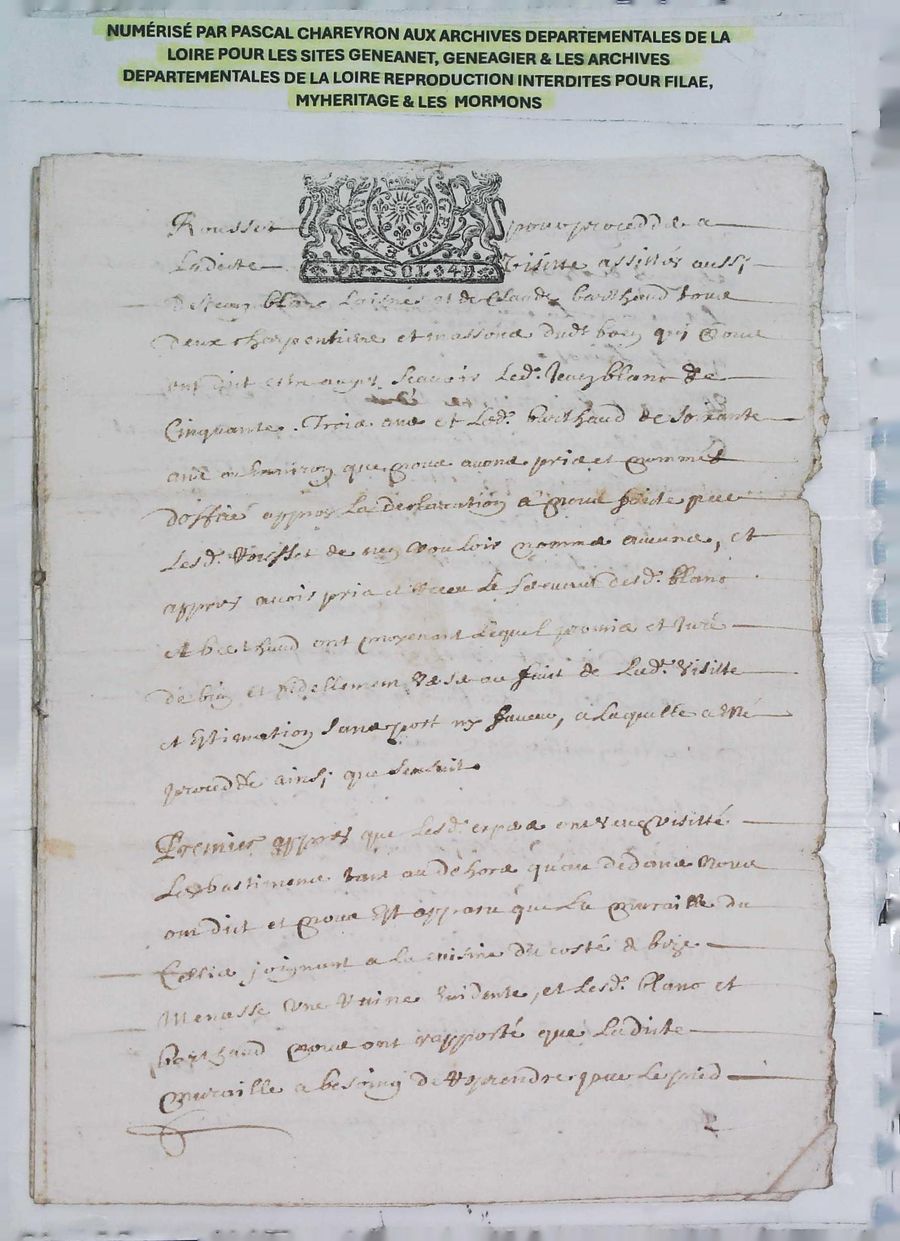 NUMÉRISÉ PAR PASCAL CHAREYRON AUX ARCHIVES DEPARTEMENTALES DE LA
LOIRE POUR LES SITES GENEANET, GENEAGIER & LES ARCHIVES
DEPARTEMENTALES DE LA LOIRE REPRODUCTION INTERDITES POUR FILAE,
MYHERITAGE & LES MORMONS
GEN. DE LION
VN SOL 4D
Rousset pour procedde a
Ladicte Visitte assistés aussi
de Jean blanc laisné et de Claude barthaud tous
deux charpentiers et massons dudt qui nous
ont dict estre ages scavoir led. Jean blanc de
Cinquante Trois ans et led. barthaud de soixante
ans ou environ que nous avons pris et nommés
doffice appres la declaration a nous faicte par
Lesd. Rousset de ney vouloir nomme aucuns, et
appres avoir pris et receu le serment desd. blanc
et barthaud ont moyenant lequel promis et Juré
de bien et fidellement au fait de Lad. Visitte
et Estimation sans port ny faveur, a laquelle a esté
procedde ainsi que sensuit
Premier appres que lesd. expers ont visitté
Les bastimens tant au dehors quau dedans nous
ont dict et nous Est apparu que La muraille du
joignant a la cuisine du costé de bize
Menasse Une Ruine Evidente, et lesd. blanc et
barthaud nous ont rapporté que Ladicte
muraille a besoing de reprendre par le pied